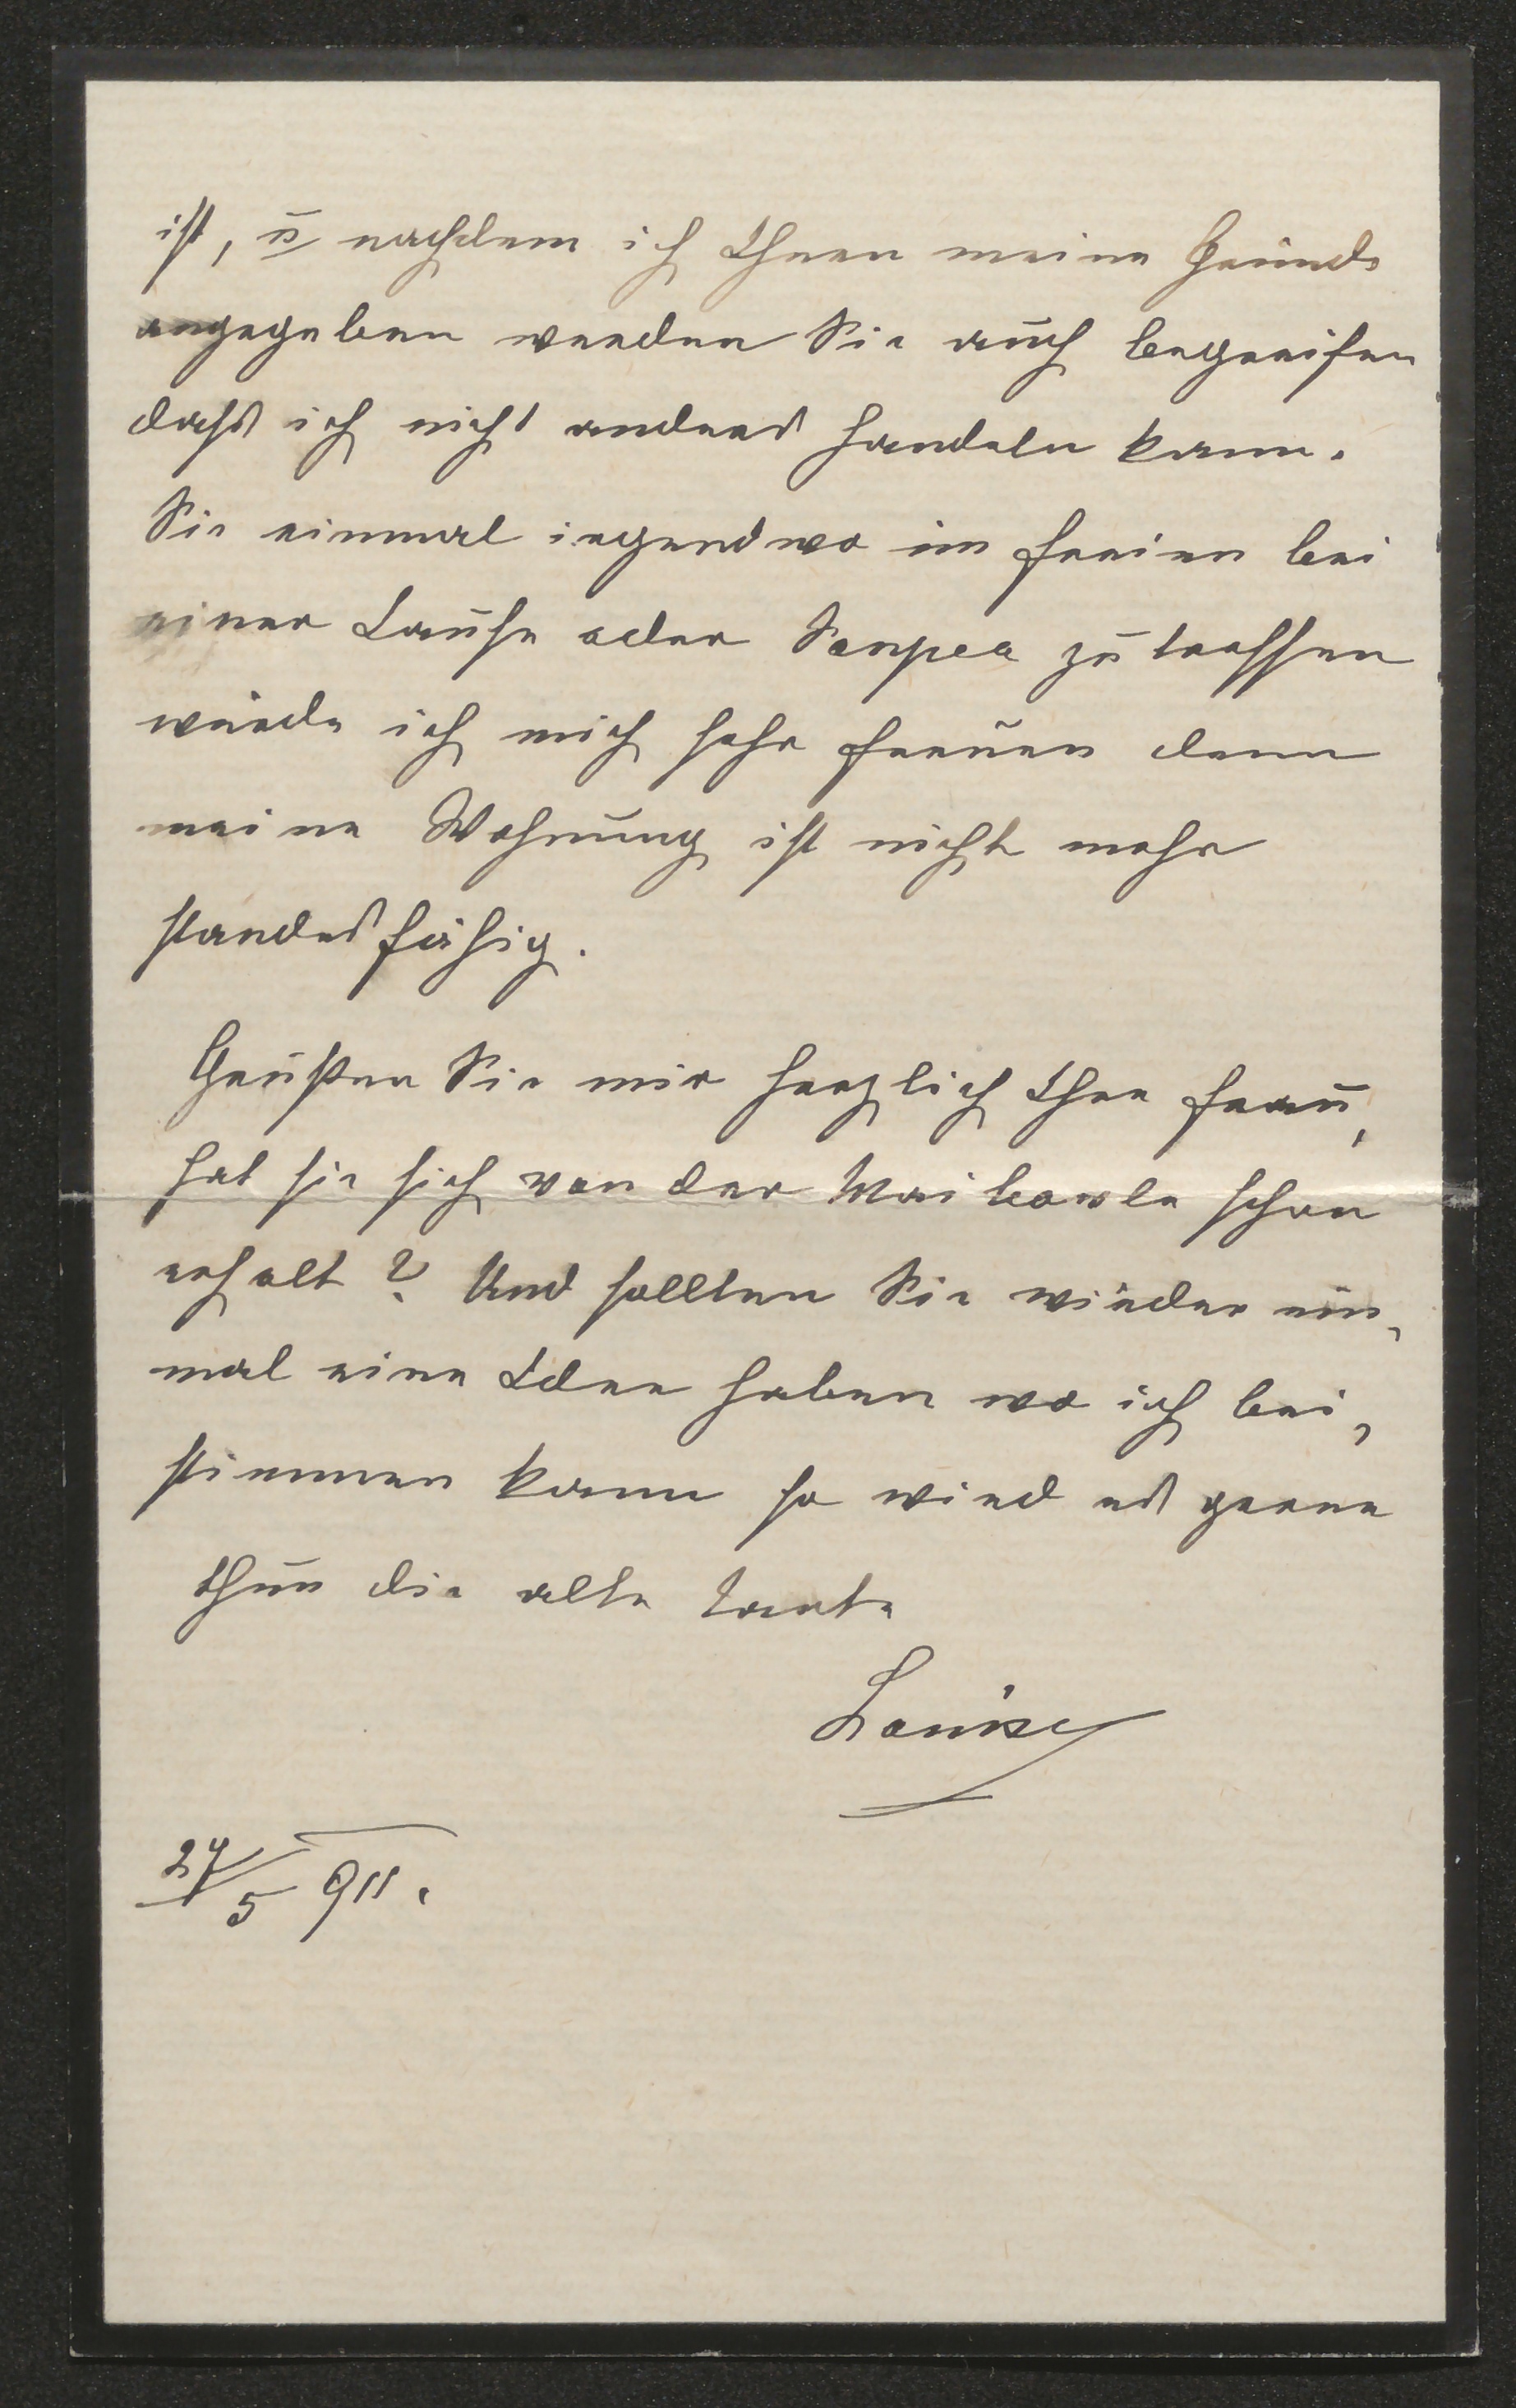 ist, u nachdem ich Ihnen meine Gründe
angegeben werden Sie auch begreifen
dass ich nicht anders handeln kann.
Sie einmal irgendwo im freien bei
einer Jause oder Souper zu treffen
würde ich mich sehr freuen denn
meine Wohnung ist nicht mehr
standesfähig.
Grüßen Sie mir herzlich Ihre Frau,
hat sie sich von der Maibowle schon
erholt? Und sollten Sie wieder ein,
mal eine Idee haben wo ich bei,
stimmen kann so wird es gerne
thun die alte Tante
Louise
24/5 911.